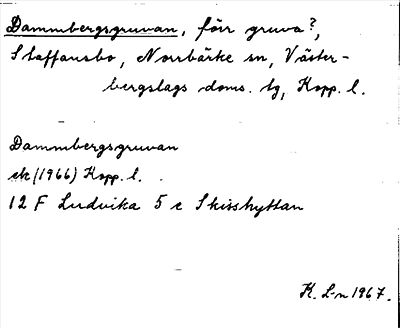 Dammbergsgruvan, förr gruva?,
Staffansbo, Norrbärke sn, Väster-
bergslags doms. tg, Kopp. l.
Dammbergsgruvan
ek (1966) Kopp. l.
12 F Ludvika 5 e Skisshyttan
K. L-n 1967.